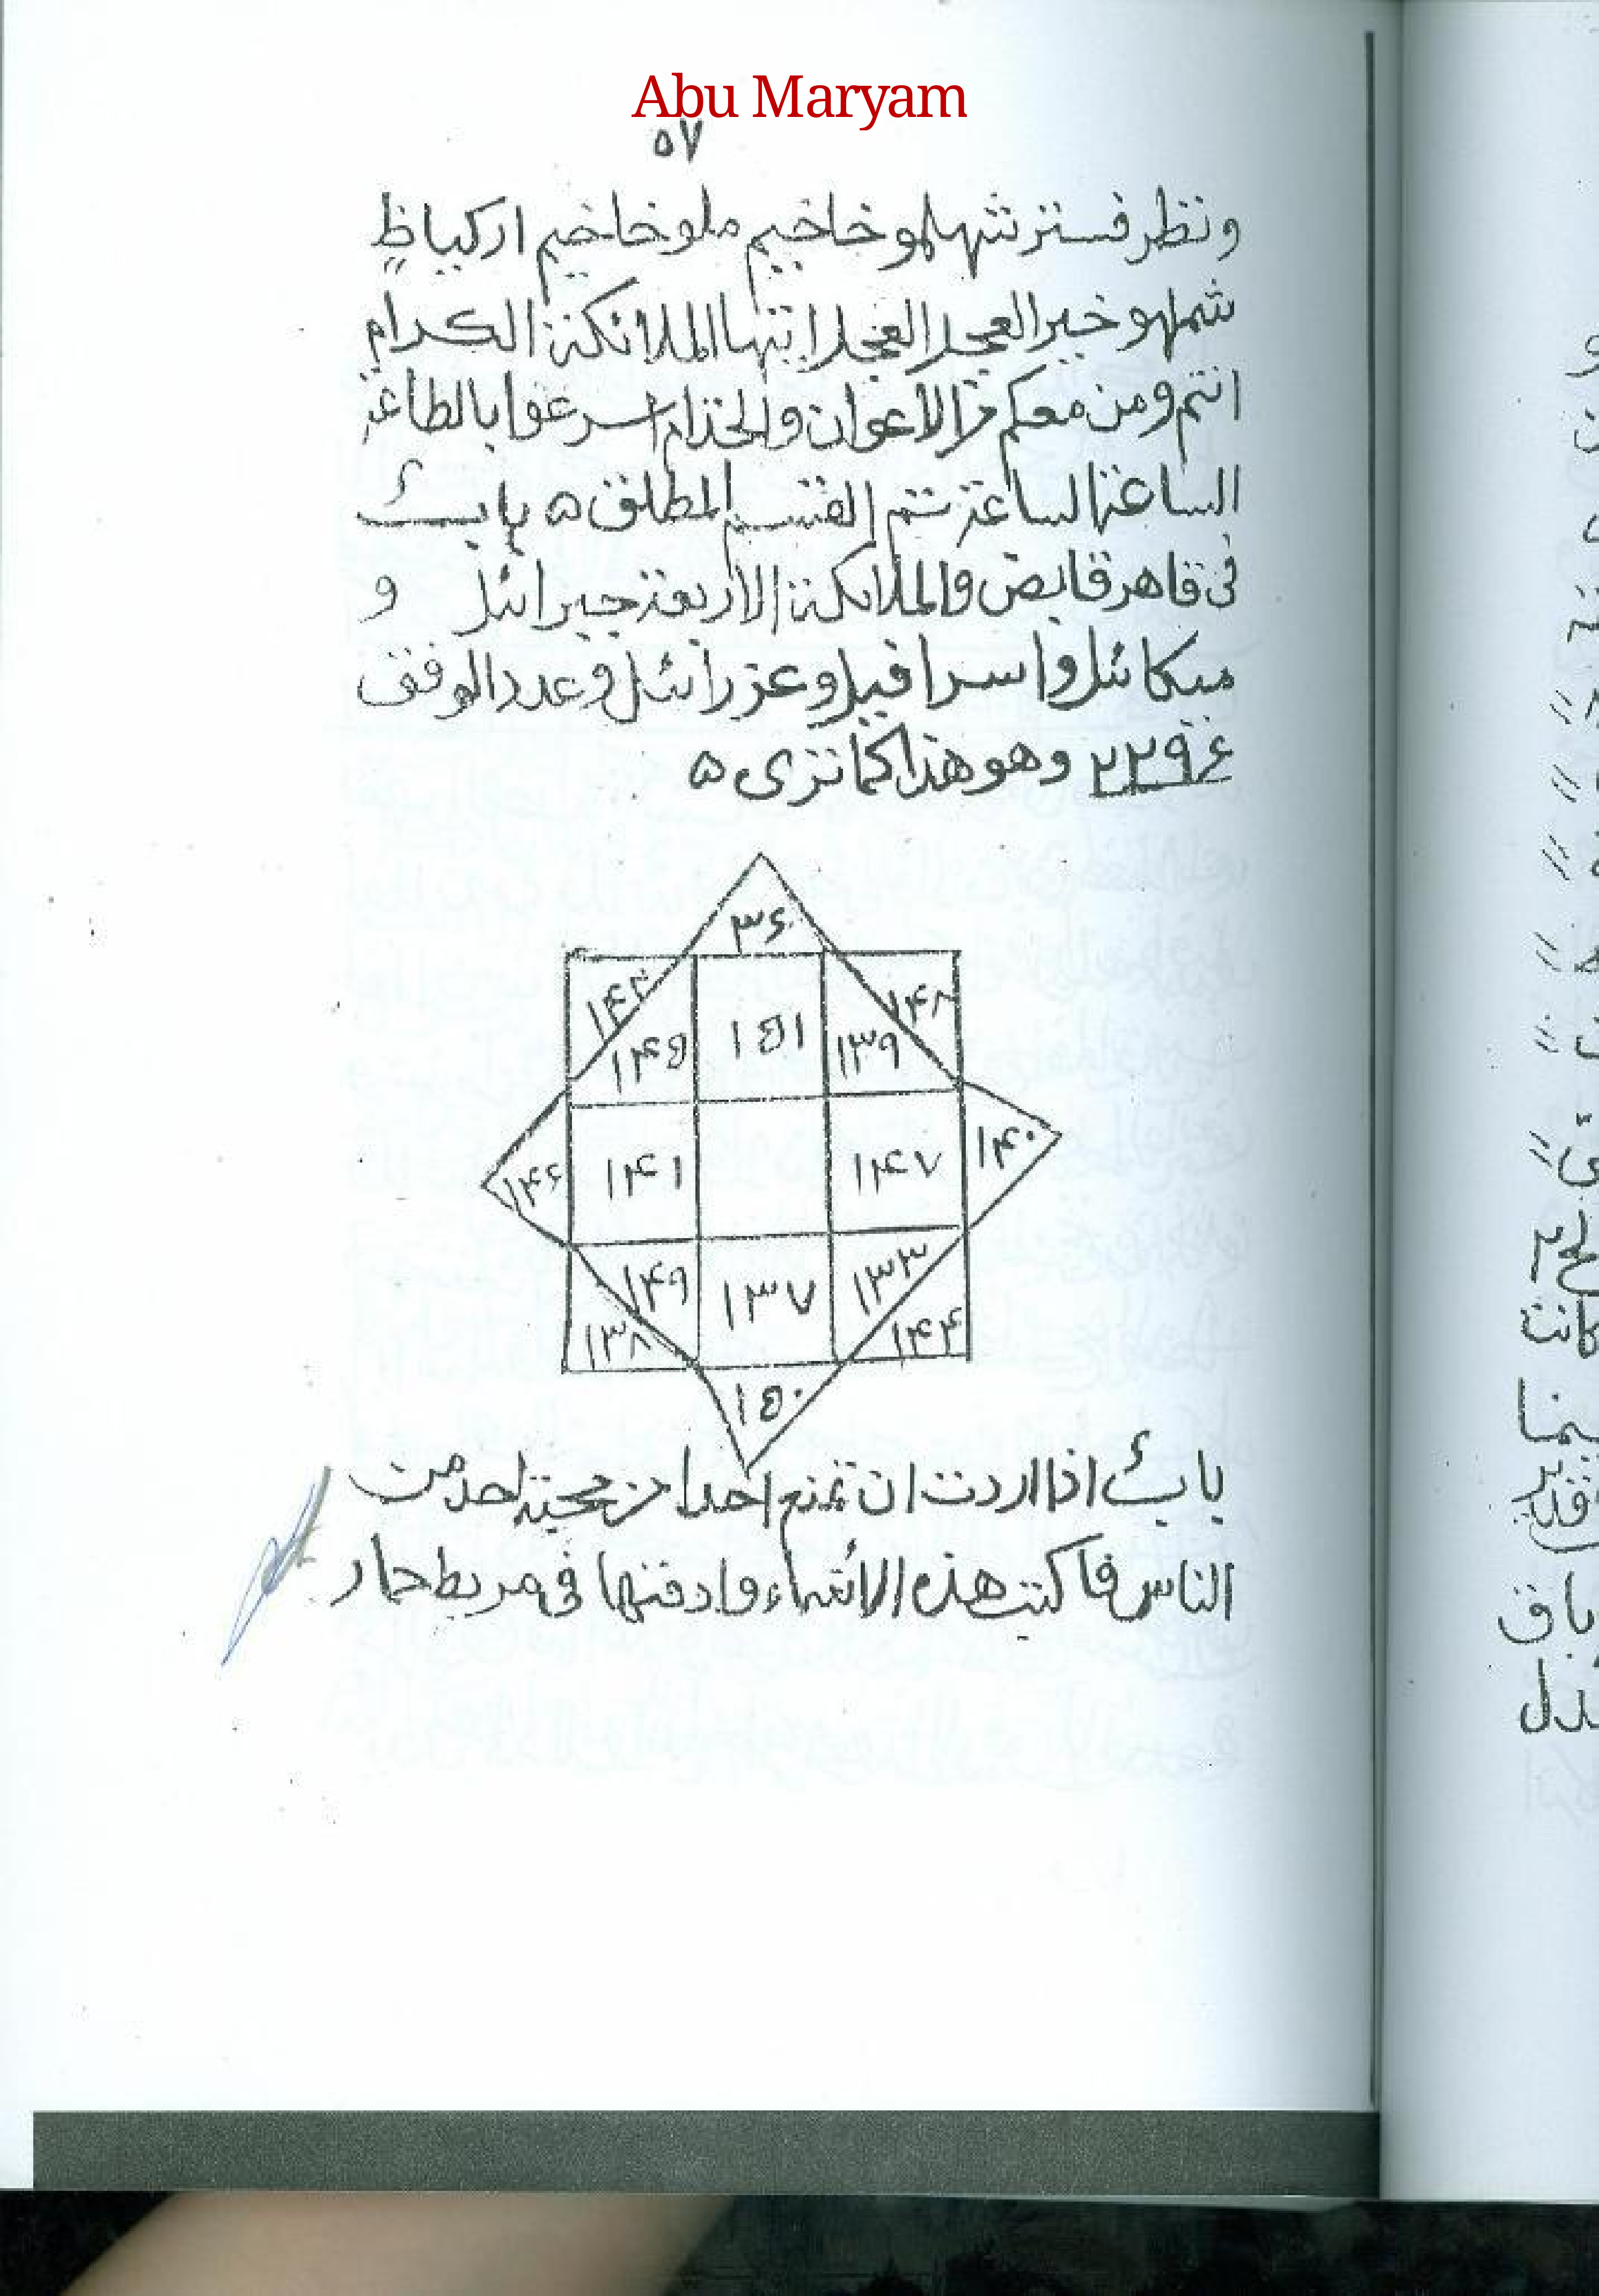 Abu Maryam
٥٧
ونظر فستز شهلمو خاخيم ملو خاخيم اركياظ
شملهو خير العجل العجل ايتها الملائكة الكرام
انتم ومن معكم من الاعوان والخدام اسرعوا بالطاعة
الساعة الساعة تتم القسم المطلق ۵ باب
فى قاهر قابض والملائكة الاربعة جبرائل و
ميكائل واسرافيل وعزرائل وعدد الوفق
٢٢٩۶ وهو هذا كما ترى ۵
٣۶
١۴٨
١۴٥ ١٥١ ١٣٩
١۴۶ ١۴١ ١۴٧ ١۴٠
١۴٩ ١٣٧ ١٣٣
١٣٨ ١۴۴
١٥٠
باب اذا اردت ان تمنع احدا من محبة احد من
الناس فاكتب هذه الاسماء وادفنها فى مربط حمار